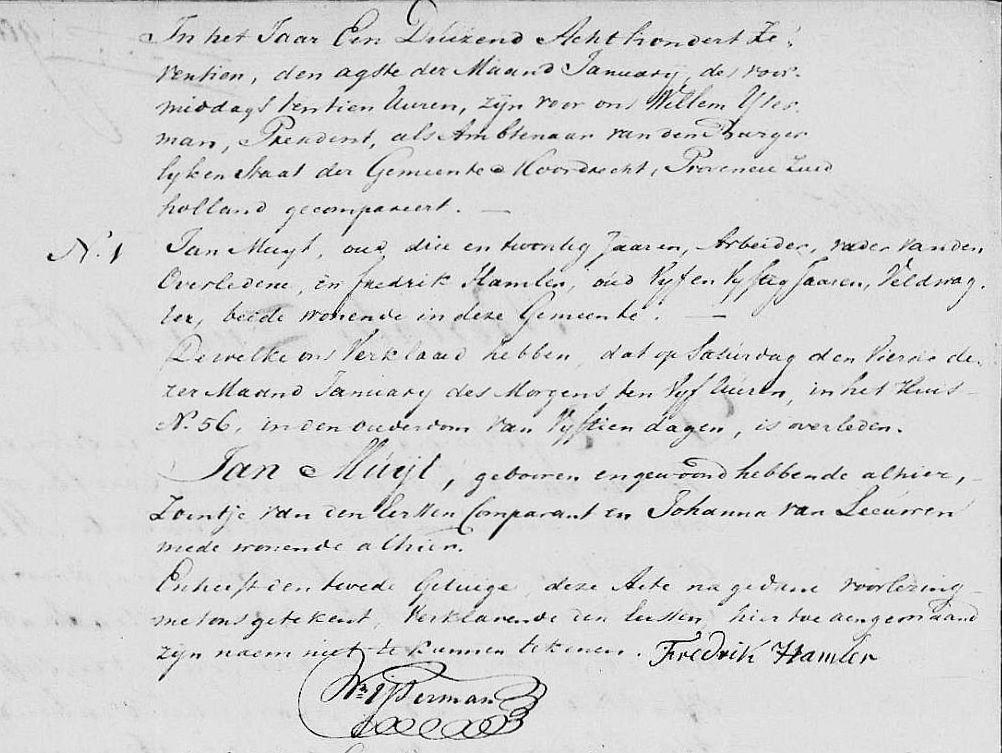 In het Jaar Een Duizend Acht hondert Ze,
ventien, den agste der Maand January, des voor-
middags ten tien Uuren, zijn voor ons Willem Yser-
man, President, als Ambtenaar van den Burger
lyken Staat der Gemeente Moordrecht, Provencie Zuid
holland gecompareert. —
N.1 Jan Muyt, oud drie en twentig Jaaren, Arbeider, vader van den
Overledene, en fredrik Hamler, oud Vyf en Vyftig Jaaren, Veldwag-
ter, beide wonende in deze Gemeente. —
Dewelke ons Verklaard hebben, dat op Saturdag den Vierde de-
zer Maand January des Morgens ten Vyf Uuren, in het Huis
N. 56, in den ouderdom van Vyftien dagen, is overleden.
Jan Muyt, geboren en gewoond hebbende alhier,
Zoentje van den Eersten Comparant en Johanna van Leeuwen
mede wonende alhier.
En heeft den twede Getuige, deze Acte na gedane voorlezing
met ons getekent, Verklarende den eersten, hier toe aengemaand
zijn naem niet te kunnen tekenen. Fredrik Hamler
Wm Ysserman